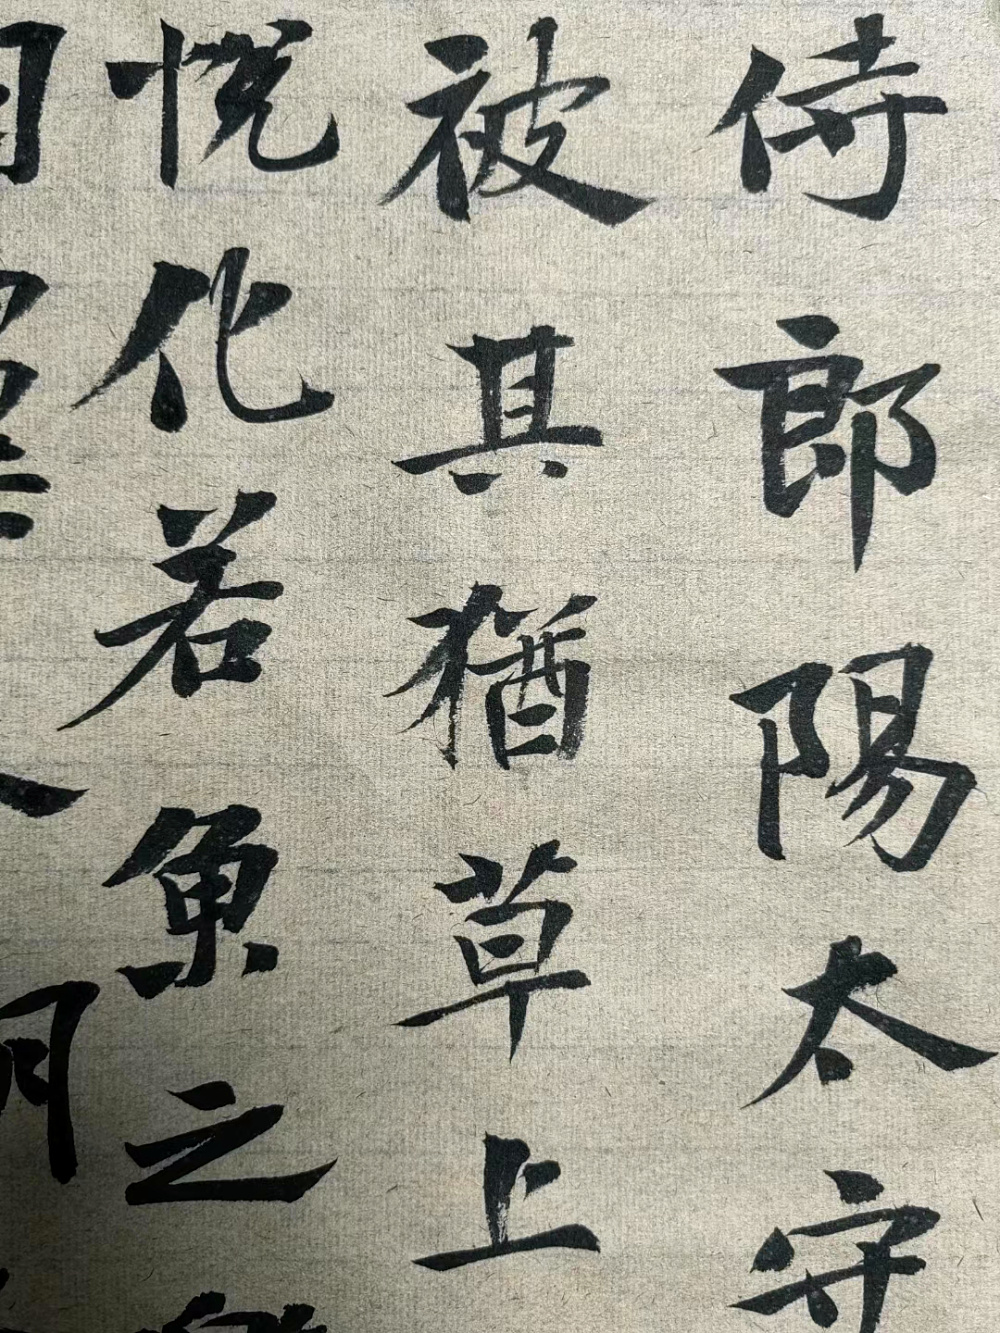 侍郎陽太守
被其猶草上
悅化若魚之